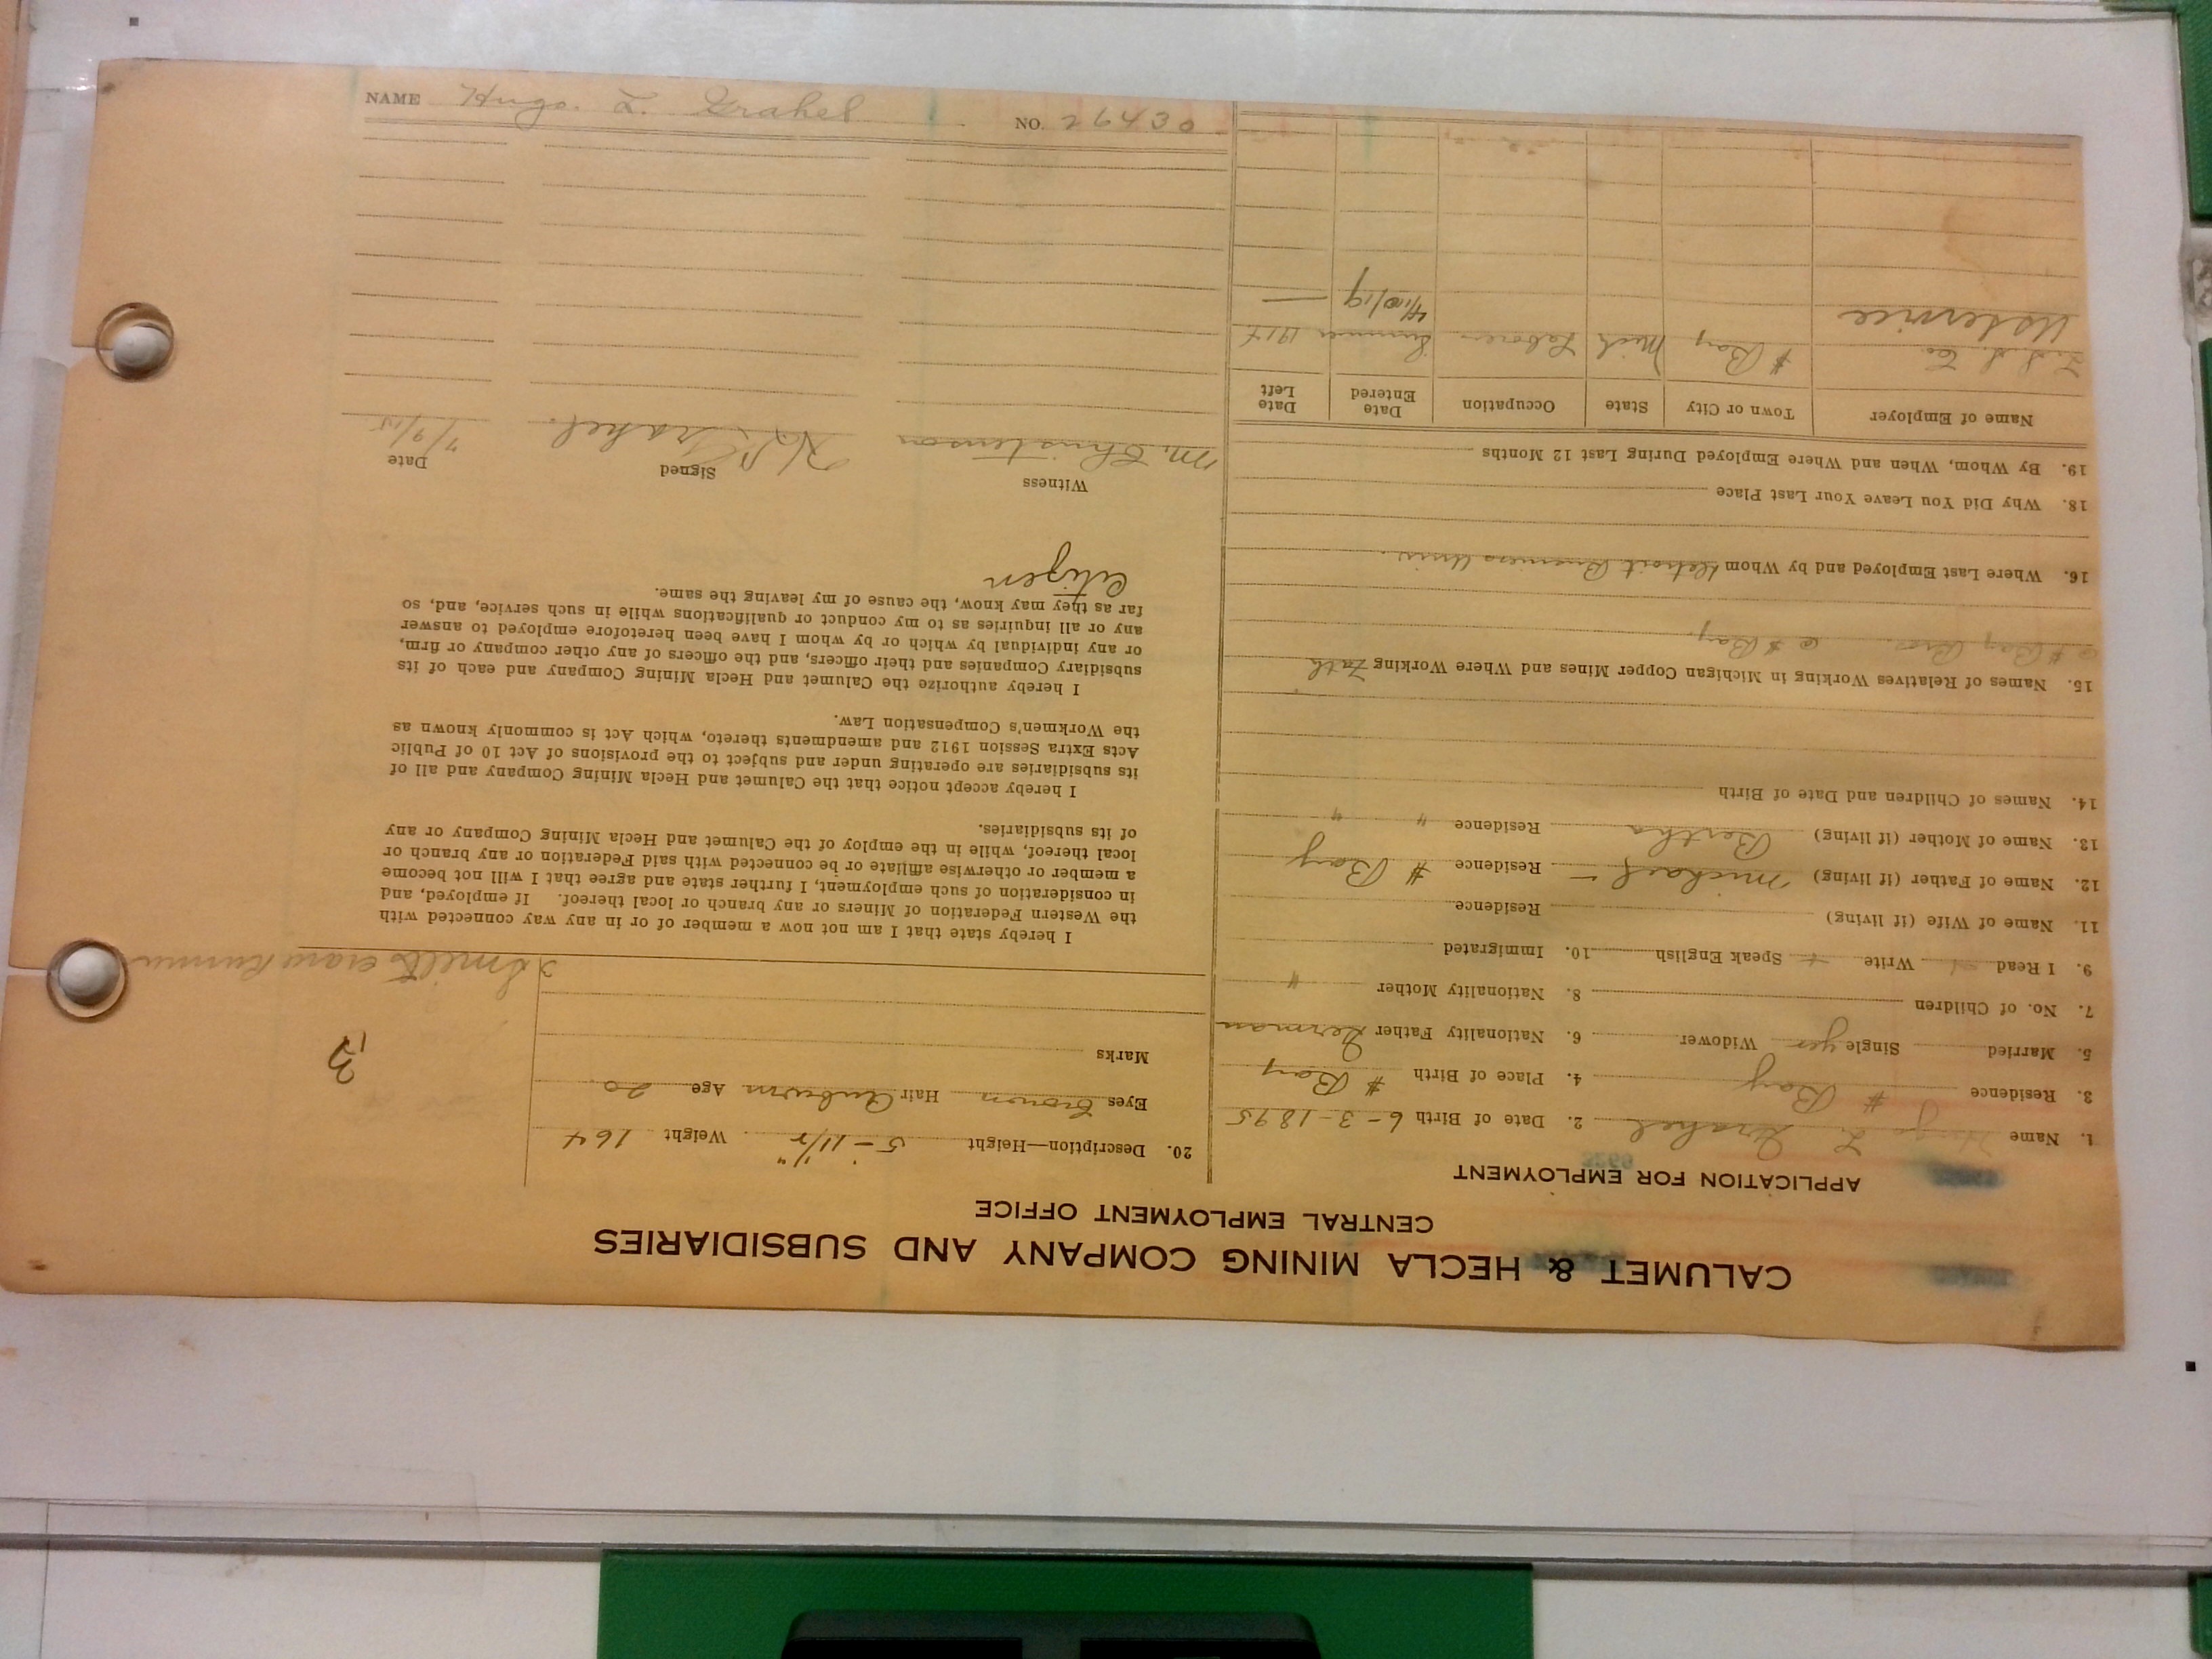 CALUMET & HECLA MINING COMPANY AND SUBSIDIARIES
CENTRAL EMPLOYMENT OFFICE
APPLICATION FOR EMPLOYMENT
1. Name Hugo L. Grahel 2. Date of Birth 6-3-1895
3. Residence # Bay 4. Place of Birth # Bay
5. Married Single yes Widower 6. Nationality Father German
7. No. of Children 8. Nationality Mother "
9. I Read Write Speak English 10. Immigrated
11. Name of Wife (if living) Residence
12. Name of Father (if living) Michael Residence # Bay
13. Name of Mother (if living) Bertha Residence " "
14. Names of Children and Date of Birth
15. Names of Relatives Working in Michigan Copper Mines and Where Working Fath
@ # Bay Bros. @ # Bay.
16. Where Last Employed and by Whom Detroit Business Univ.
18. Why Did You Leave Your Last Place
19. By Whom, When and Where Employed During Last 12 Months
Name of Employer Town or City State Occupation Date Entered Date Left
Co # Bay Mich Laborer Summer 1914
US Service 4/10/19 —
20. Description—Height 5-11 1/2" Weight 164
Eyes Brown Hair Auburn Age 20
Marks
Smelt crane Runner
I hereby state that I am not now a member of or in any way connected with
the Western Federation of Miners or any branch or local thereof. If employed, and
in consideration of such employment, I further state and agree that I will not become
a member or otherwise affiliate or be connected with said Federation or any branch or
local thereof, while in the employ of the Calumet and Hecla Mining Company or any
of its subsidiaries.
I hereby accept notice that the Calumet and Hecla Mining Company and all of
its subsidiaries are operating under and subject to the provisions of Act 10 of Public
Acts Extra Session 1912 and amendments thereto, which Act is commonly known as
the Workmen's Compensation Law.
I hereby authorize the Calumet and Hecla Mining Company and each of its
subsidiary Companies and their officers, and the officers of any other company or firm,
or any individual by which or by whom I have been heretofore employed to answer
any or all inquiries as to my conduct or qualifications while in such service, and, so
far as they may know, the cause of my leaving the same.
Citizen
Witness Signed Date
M. Christenson H L Grahel. 7/9/15
NAME Hugo. L. Grahel NO. 26430